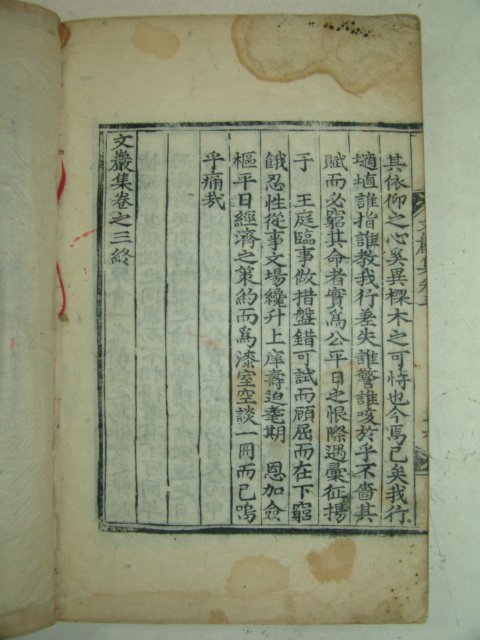 其依仰之心奚異樑木之可恃也今焉已矣我行
擿埴誰指誰教我行差失誰警誰咳於乎不嗇其
賦而必窮其命者實爲公平日之恨際遇彙征揚
于 王庭臨事做措盤錯可試而顧屈而在下窮
餓忍性從事文場纔升上庠壽迫耄期 恩加僉
樞平日經濟之策約而爲漆室空談一冊而已嗚
乎痛哉
文巖集卷之三終